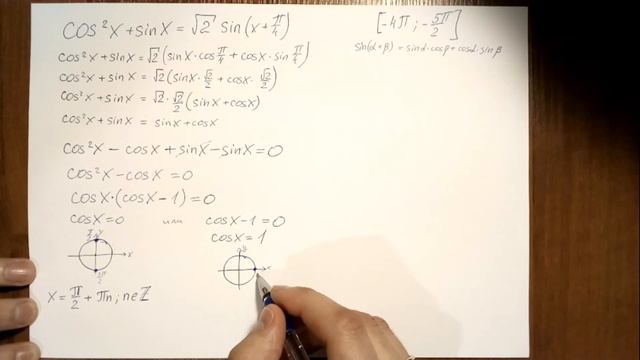 cos²x + sinx = √2 sin(x + π/4)
[-4π ; -5π/2]
sin(α+β) = sinα·cosβ + cosα·sinβ
cos²x + sinx = √2 (sinx·cos π/4 + cosx·sin π/4)
cos²x + sinx = √2 (sinx·√2/2 + cosx·√2/2)
cos²x + sinx = √2·√2/2 (sinx + cosx)
cos²x + sinx = sinx + cosx
cos²x - cosx + sinx - sinx = 0
cos²x - cosx = 0
cosx·(cosx - 1) = 0
cosx = 0 или cosx - 1 = 0
cosx = 1
π/2 y
x
3π/2
y
x
x = π/2 + πn ; n∈Z